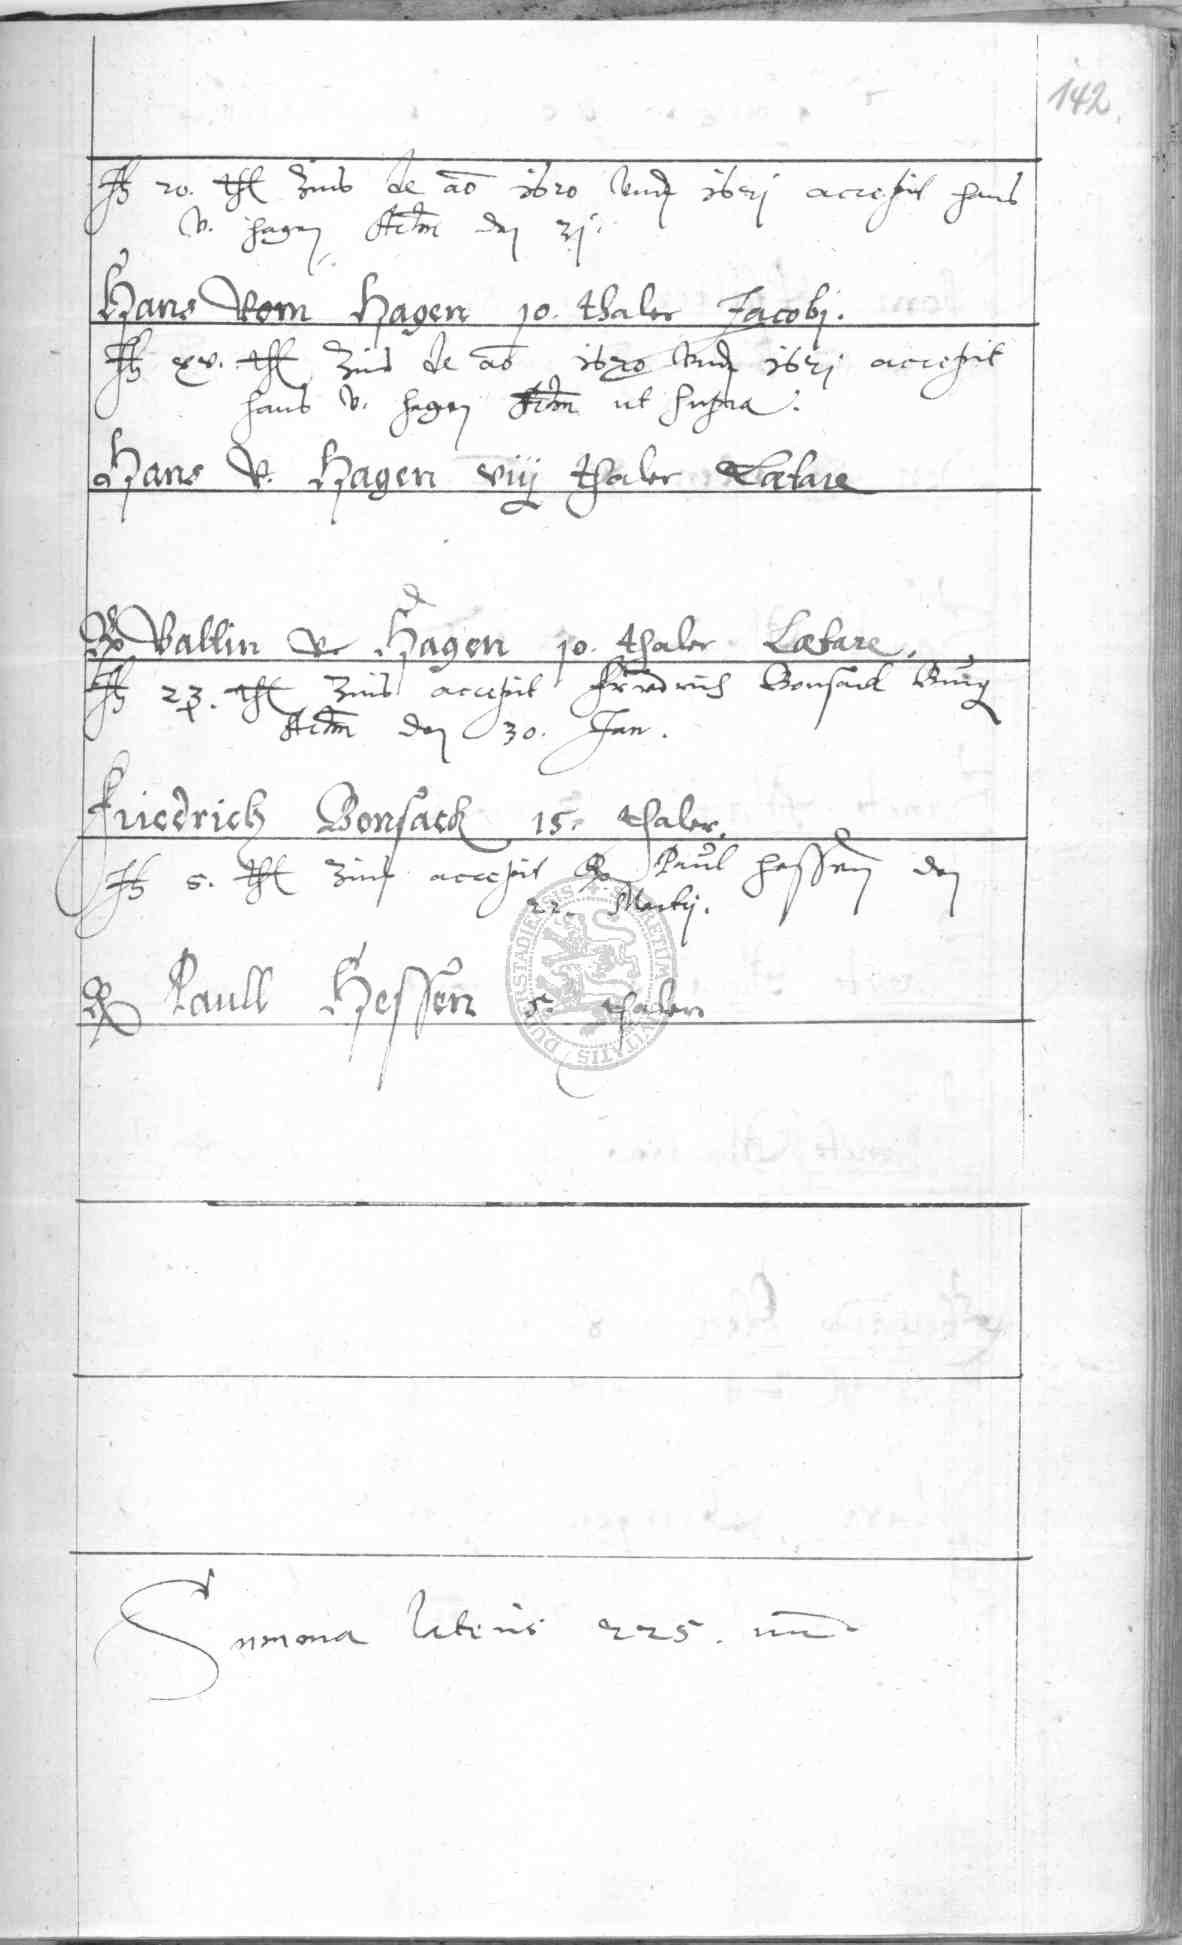 142.
20. thl Zins de ao 1620 und 1621 accepit Hans
v. Hagen Actum den 31.
Hans Vom Hagen 10. thaler Jacobj.
xv. thl Zins de ao 1620 und 1621 accepit
Hans v. Hagen Actum ut supra.
Hans V. Hagen viij thaler Laetare
Valtin V Hagen 10. thaler Laetare.
23. thl Zins accepit Friedrich Bonsack
Actum den 30. Jan.
Friedrich Bonsack 15. thaler.
5. thl Zins accepit Paul Hessen den
22. Martij.
Paull Hessen 5. thaler
Summa lateris 225.